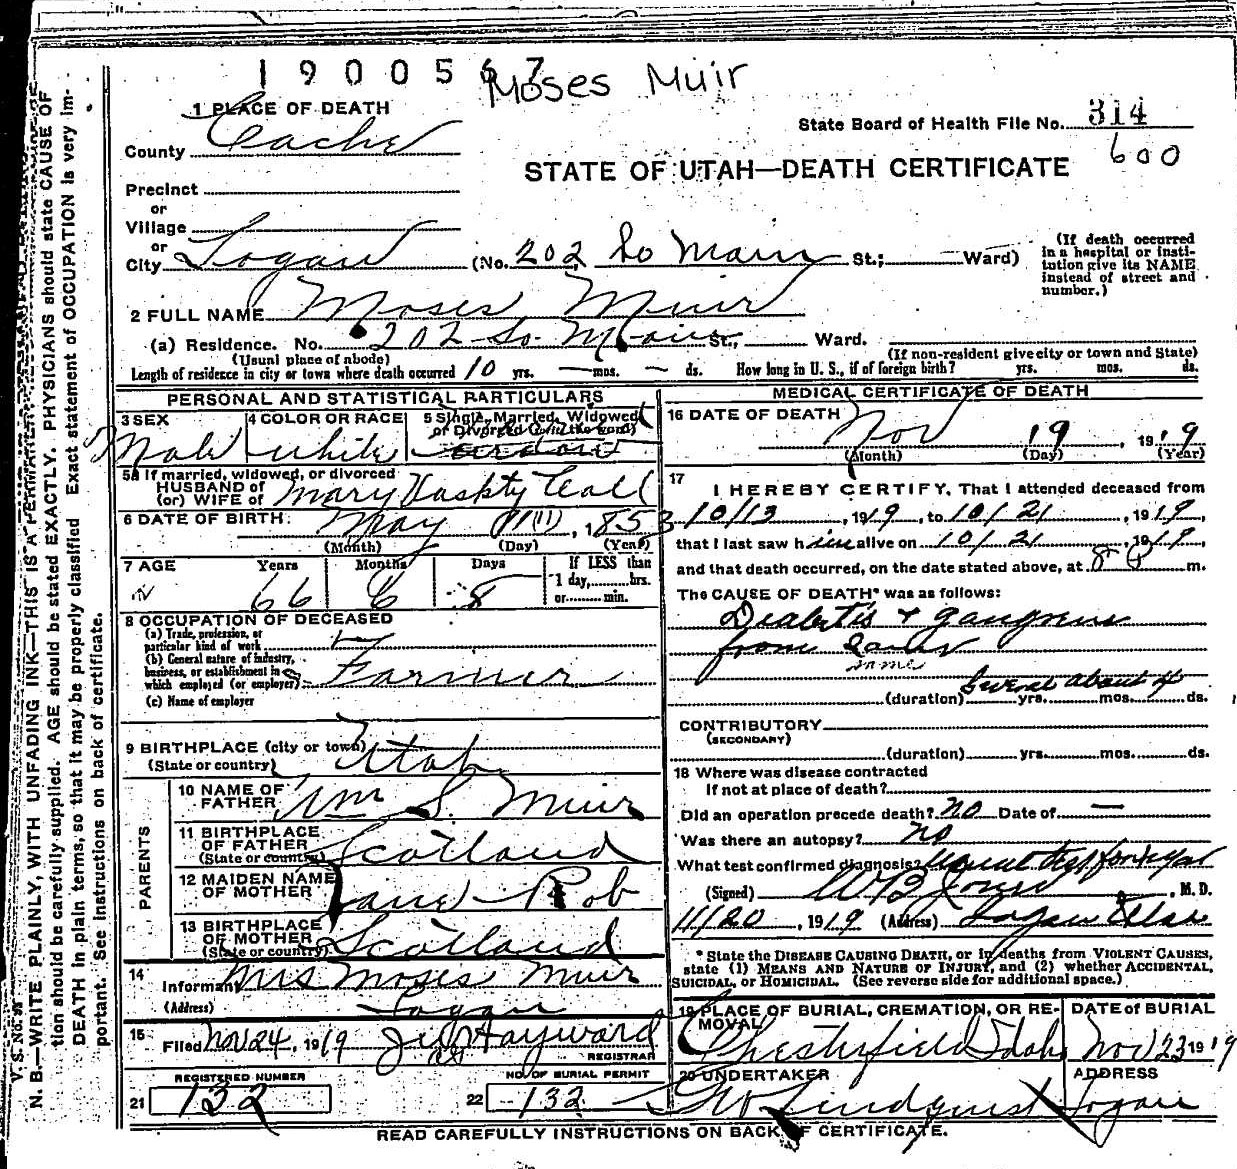 1900567
Moses Muir
1 PLACE OF DEATH
County Cache
State Board of Health File No. 314
600
STATE OF UTAH—DEATH CERTIFICATE
Precinct
or
Village
or
City Logan (No. 202 So Main St.; Ward)
(If death occurred in a hospital or institution give its NAME instead of street and number.)
2 FULL NAME Moses Muir
(a) Residence. No. 202 So. Main St., Ward.
(Usual place of abode)
(If non-resident give city or town and State)
Length of residence in city or town where death occurred 10 yrs. — mos. — ds. How long in U. S., if of foreign birth? yrs. mos. ds.
PERSONAL AND STATISTICAL PARTICULARS
3 SEX Male
4 COLOR OR RACE white
5 Single, Married, Widowed or Divorced (write the word)
5a If married, widowed, or divorced
HUSBAND of
(or) WIFE of Mary
6 DATE OF BIRTH: May 11 (11), 1853
(Month) (Day) (Year)
7 AGE Years Months Days If LESS than
1 day, hrs.
or min.
66 6 8
8 OCCUPATION OF DECEASED
(a) Trade, profession, or particular kind of work
(b) General nature of industry, business, or establishment in which employed (or employer) Farmer
(c) Name of employer
9 BIRTHPLACE (city or town)
(State or country) Utah
PARENTS
10 NAME OF FATHER Wm S. Muir
11 BIRTHPLACE OF FATHER
(State or country) Scotland
12 MAIDEN NAME OF MOTHER Jane Rob
13 BIRTHPLACE OF MOTHER
(State or country) Scotland
14
Informant Mrs Moses Muir
(Address) Logan
15
Filed Nov 24, 1919 Hayward
REGISTRAR
REGISTERED NUMBER
21 132
NO. OF BURIAL PERMIT
22 132
MEDICAL CERTIFICATE OF DEATH
16 DATE OF DEATH
Nov 19, 1919
(Month) (Day) (Year)
17
I HEREBY CERTIFY, That I attended deceased from
10/13, 1919, to 10/21, 1919,
that I last saw him alive on 10/21, 1919,
and that death occurred, on the date stated above, at 8 m.
The CAUSE OF DEATH* was as follows:
Diabetis + gangrene
from
same
(duration) Several about 4 yrs. mos. ds.
CONTRIBUTORY
(SECONDARY)
(duration) yrs. mos. ds.
18 Where was disease contracted
If not at place of death?
Did an operation precede death? no Date of —
Was there an autopsy? no
What test confirmed diagnosis? Usual test for sugar
(Signed) W B Jones, M. D.
11/20, 1919 (Address) Logan Utah
* State the DISEASE CAUSING DEATH, or in deaths from VIOLENT CAUSES, state (1) MEANS AND NATURE OF INJURY, and (2) whether ACCIDENTAL, SUICIDAL, or HOMICIDAL. (See reverse side for additional space.)
19 PLACE OF BURIAL, CREMATION, OR REMOVAL
Chesterfield Idaho
DATE of BURIAL
Nov 23 1919
20 UNDERTAKER
Lindquist
ADDRESS
Logan
READ CAREFULLY INSTRUCTIONS ON BACK OF CERTIFICATE.
N. B.—WRITE PLAINLY, WITH UNFADING INK—THIS IS A PERMANENT
tion should be carefully supplied. AGE should be stated EXACTLY. PHYSICIANS should state CAUSE OF
DEATH in plain terms, so that it may be properly classified. Exact statement of OCCUPATION is very im-
portant. See instructions on back of certificate.